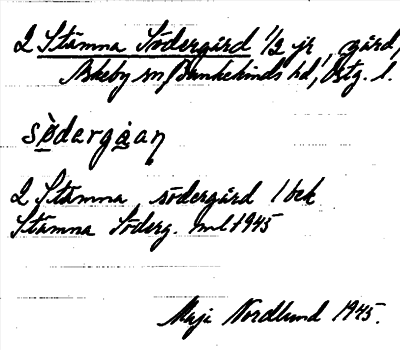 2 Stämna Södergård 1/2 jr, gård,
Askeby sn, Bankekinds hd, Östg. l.
södargåan
2 Stämna, södergård 1 bek
Stämna Söderg. ml 1945
Maja Nordlund 1945.